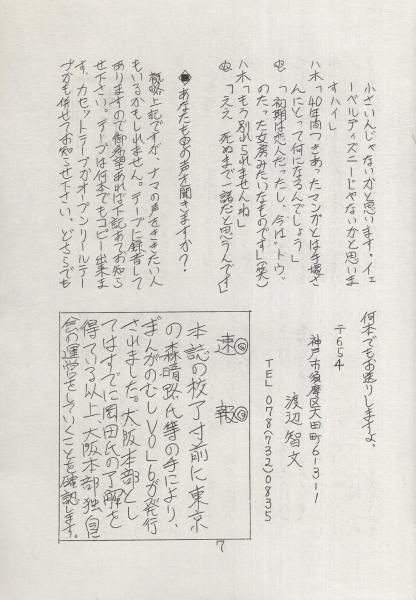 小さいんじゃないかと思います。イェ
ーベルディズニーじゃないかと思いま
すハイ」
八木「40年間つきあったマンガとは手塚さ
んにとって何になるんでしょう」
「初期は恋人だったし、今は"トウ"
のたった女房みたいなものです」(笑)
八木「もう別れられませんね」
「ええ 死ぬまで一諸だと思うんです」
◆あなたもあの声を聞きますか？
概略上記ですが、ナマの声をききたい人
もいるかもしれません。テープに録音して
ありますので御希望あれば下記あてお知ら
せ下さい。テープは何本でもコピー出来ま
す。カセットテープかオープンリールテー
プかも併せてお知らせ下さい。どちらでも
何本でもお送りしますよ。
〒654
神戸市須摩区大田町6-3-11
渡辺智文
TEL 078(732)0835
速報
本誌の校了寸前に東京
の森晴路氏等の手により、
まんがのむしVOL6が発行
されました。大阪本部とし
てはすでに岡田氏の了解を
得ている以上大阪本部独自
の運営をしていくことを確認します。
7